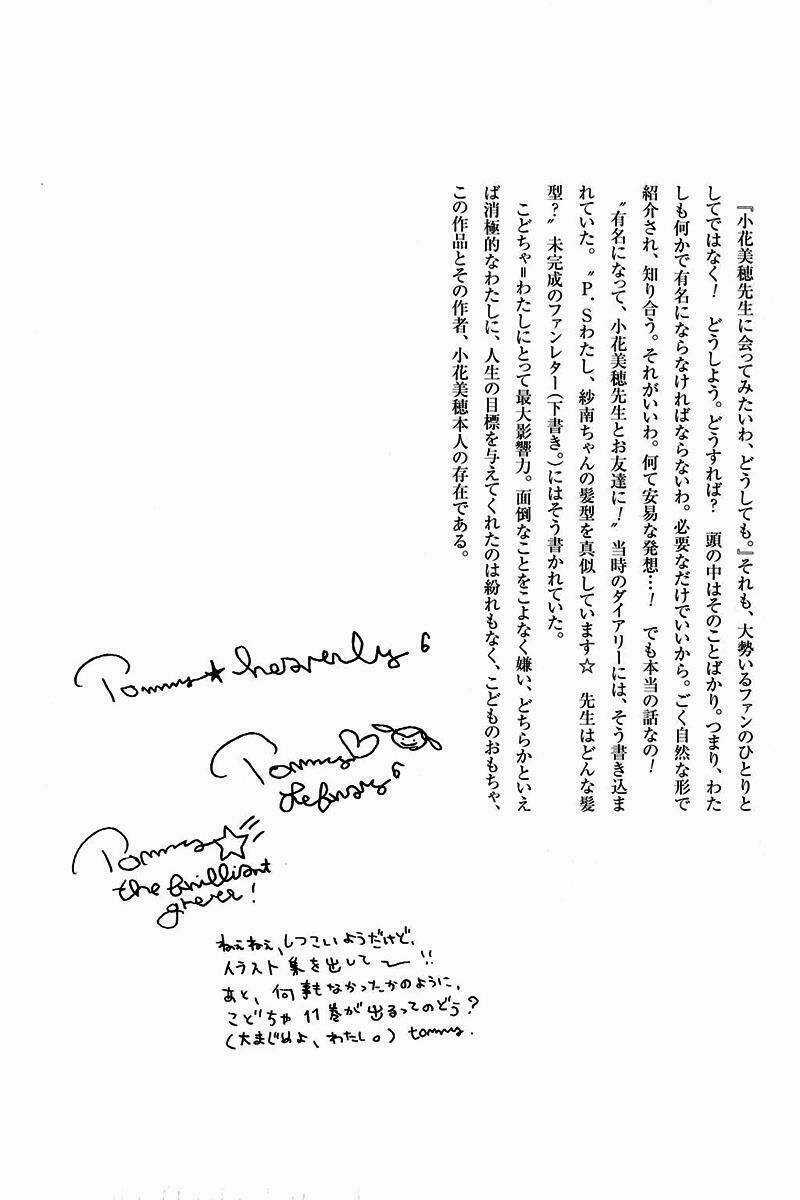 『小花美穂先生に会ってみたいわ、どうしても。』それも、大勢いるファンのひとりと
してではなく！　どうしよう。どうすれば？　頭の中はそのことばかり。つまり、わた
しも何かで有名にならなければならないわ。必要なだけでいいから。ごく自然な形で
紹介され、知り合う。それがいいわ。何て安易な発想…！　でも本当の話なの！
〝有名になって、小花美穂先生とお友達に！〟当時のダイアリーには、そう書き込ま
れていた。〝P.Sわたし、紗南ちゃんの髪型を真似しています☆　先生はどんな髪
型？〟未完成のファンレター（下書き。）にはそう書かれていた。
こどちゃ＝わたしにとって最大影響力。面倒なことをこよなく嫌い、どちらかといえ
ば消極的なわたしに、人生の目標を与えてくれたのは紛れもなく、こどものおもちゃ、
この作品とその作者、小花美穂本人の存在である。
Tommy★heavenly6
Tommy♡
february6
Tommy☆
the brilliant
green!
ねぇねぇ、しつこいようだけど、
イラスト集を出して〜!!
あと、何事もなかったかのように、
こどちゃ11巻が出るってのどう?
(大まじめよ、わたし。) tommy.